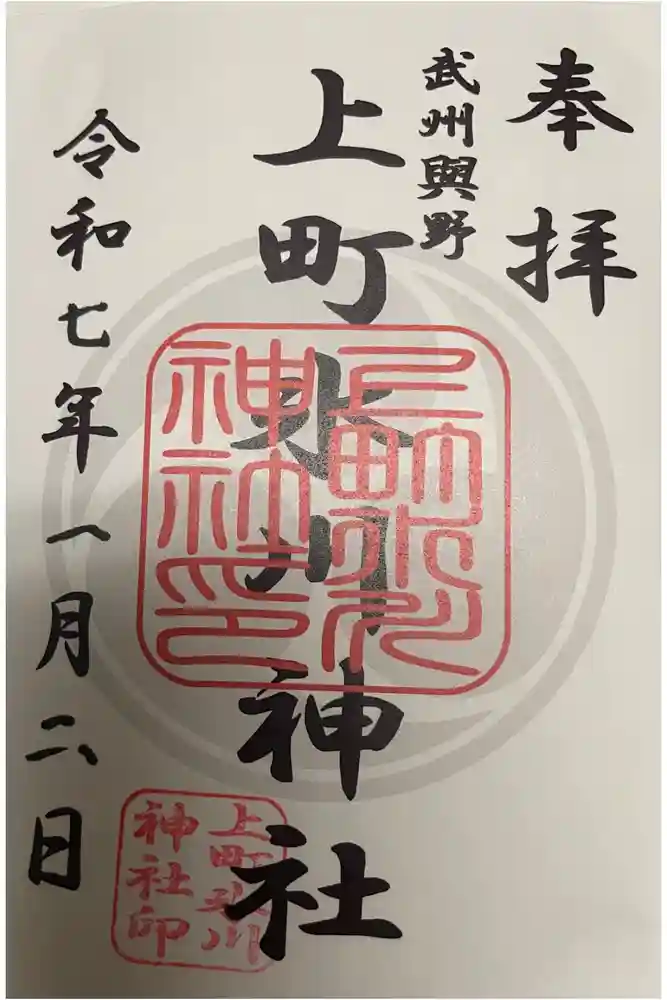 奉拝
武州與野
上町氷川神社
上町氷川神社印
上町氷川神社印
令和七年一月二日